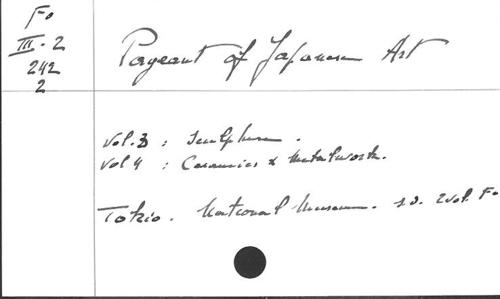 Fo
III-2
242
2
Pageant of Japanese Art
Vol.3 : Sculpture.
Vol 4 : Ceramics & Metalwork.
Tokio. National Museum. s.d. 2 vol. Fo